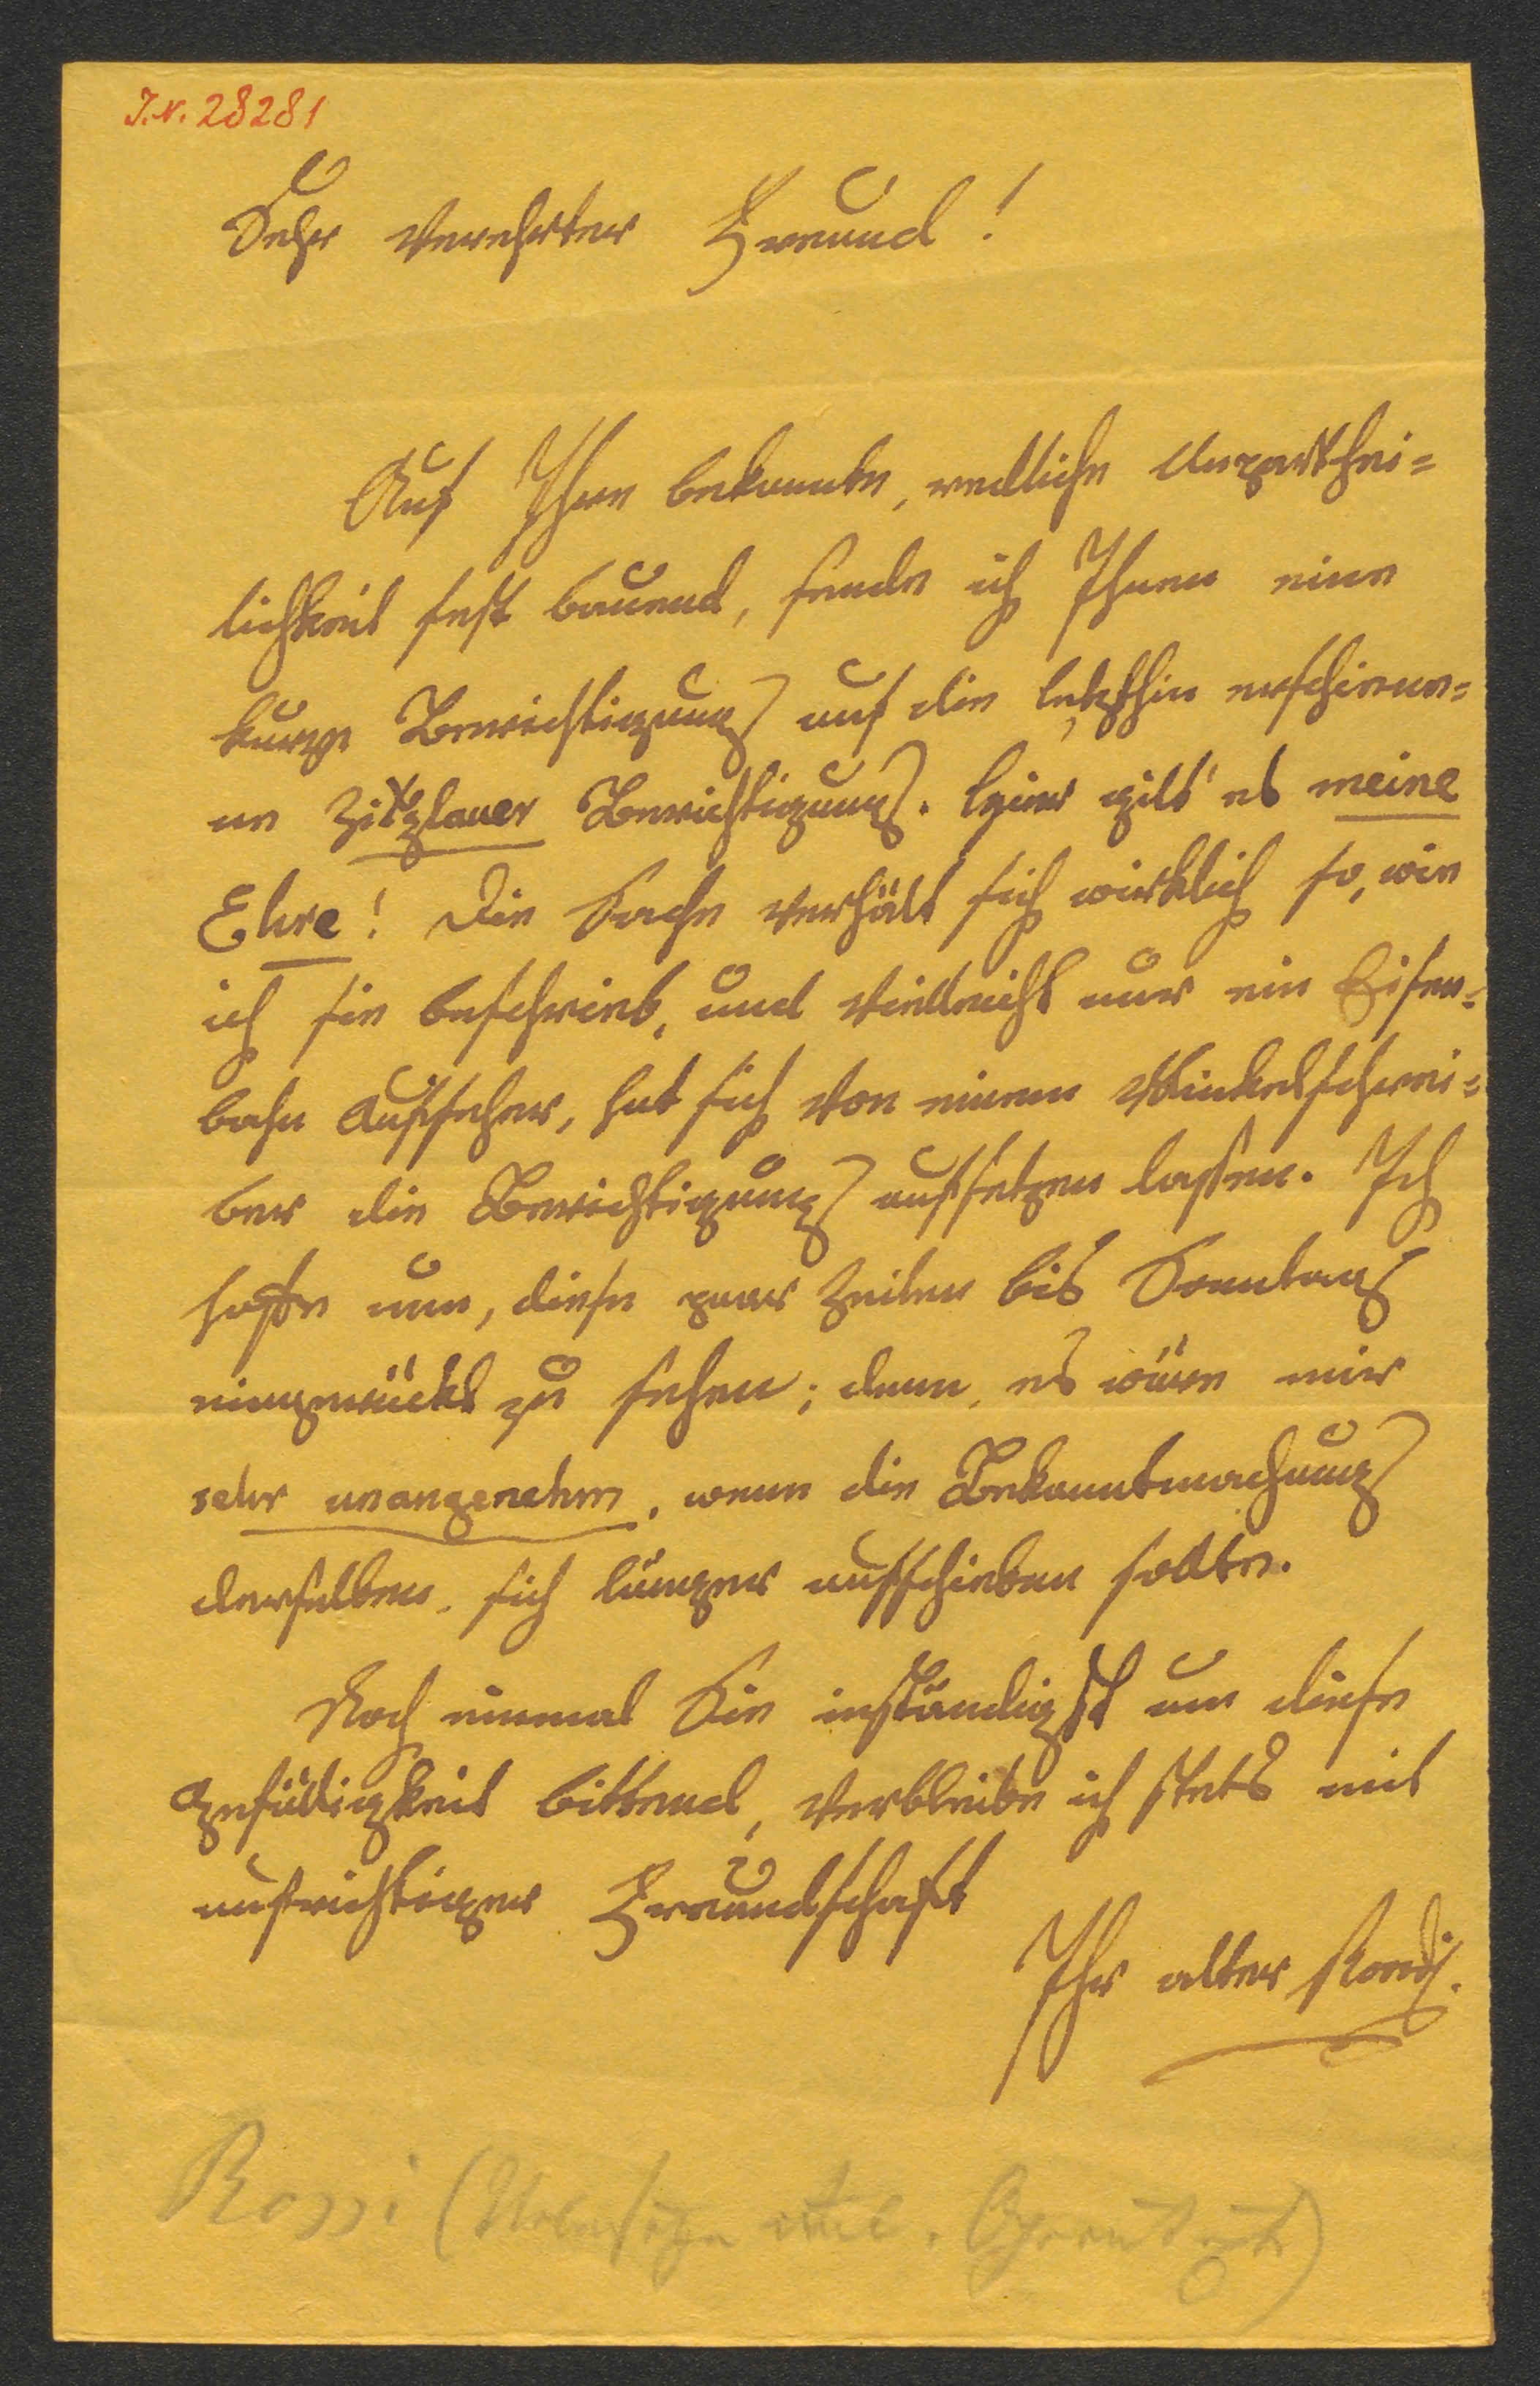 I.N. 28281
Sehr verehrter Freund!
Auf Ihre bekannte, redliche Unparthei=
lichkeit fest bauend, sende ich Ihnen eine
kurze Berichtigung auf die letzthin erschiene=
ne Zitzlauer Berichtigung. Hier gilt es meine
Ehre! Die Sache verhält sich wirklich so, wie
ich sie beschrieb, und vielleicht nur ein Eisen=
bahn Aufseher, hat sich von einem Winkelschrei=
ber die Berichtigung aufsetzen lassen. Ich
hoffe nun, diese paar Zeilen bis Sonntag
eingerückt zu sehen; denn, es wäre mir
sehr unangenehm, wenn die Bekanntmachung
derselben, sich länger aufschieben sollte.
Noch einmal Sie inständigst um diese
Gefälligkeit bittend, verbleibe ich stets mit
aufrichtiger Freundschaft
Ihr alter Rossi.
Rossi (Uebersetzer ital. Operntexte)